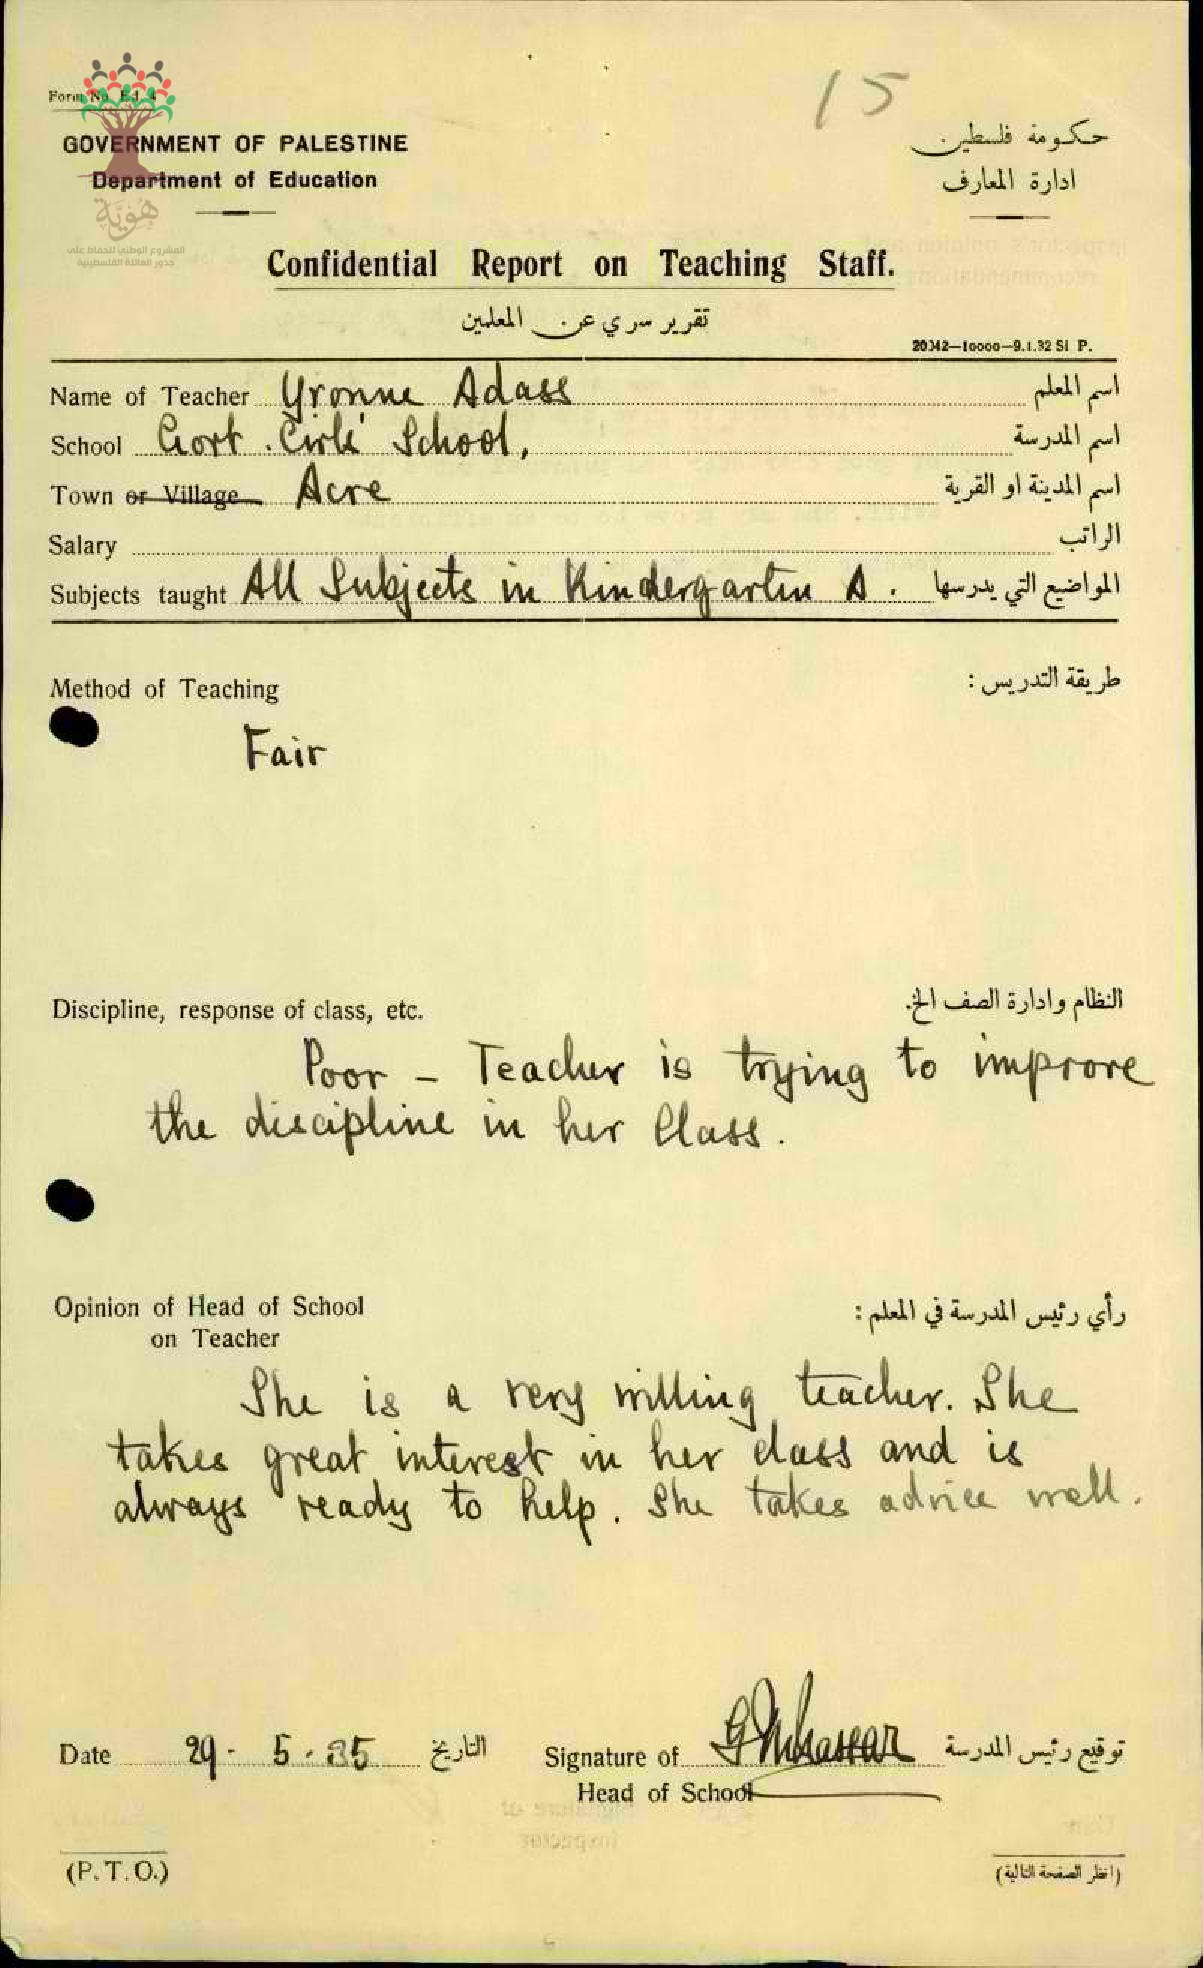 15
Form No. Ed. 4
GOVERNMENT OF PALESTINE
Department of Education
حكومة فلسطين
ادارة المعارف
هُوِيَّة
المشروع الوطني للحفاظ على
جذور العائلة الفلسطينية
Confidential Report on Teaching Staff.
تقرير سري عن المعلمين
20342—10000—9.1.32 SI P.
Name of Teacher Yvonne Adass اسم المعلم
School Govt. Girls' School, اسم المدرسة
Town or Village Acre اسم المدينة او القرية
Salary الراتب
Subjects taught All Subjects in Kindergarten A. المواضيع التي يدرسها
Method of Teaching طريقة التدريس :
Fair
Discipline, response of class, etc. النظام وادارة الصف الخ.
Poor - Teacher is trying to improve
the discipline in her Class.
Opinion of Head of School رأي رئيس المدرسة في المعلم :
on Teacher
She is a very willing teacher. She
takes great interest in her class and is
always ready to help. She takes advice well.
Date 29 - 5 - 35 التاريخ Signature of توقيع رئيس المدرسة
Head of School
(P.T.O.) (انظر الصفحة التالية)